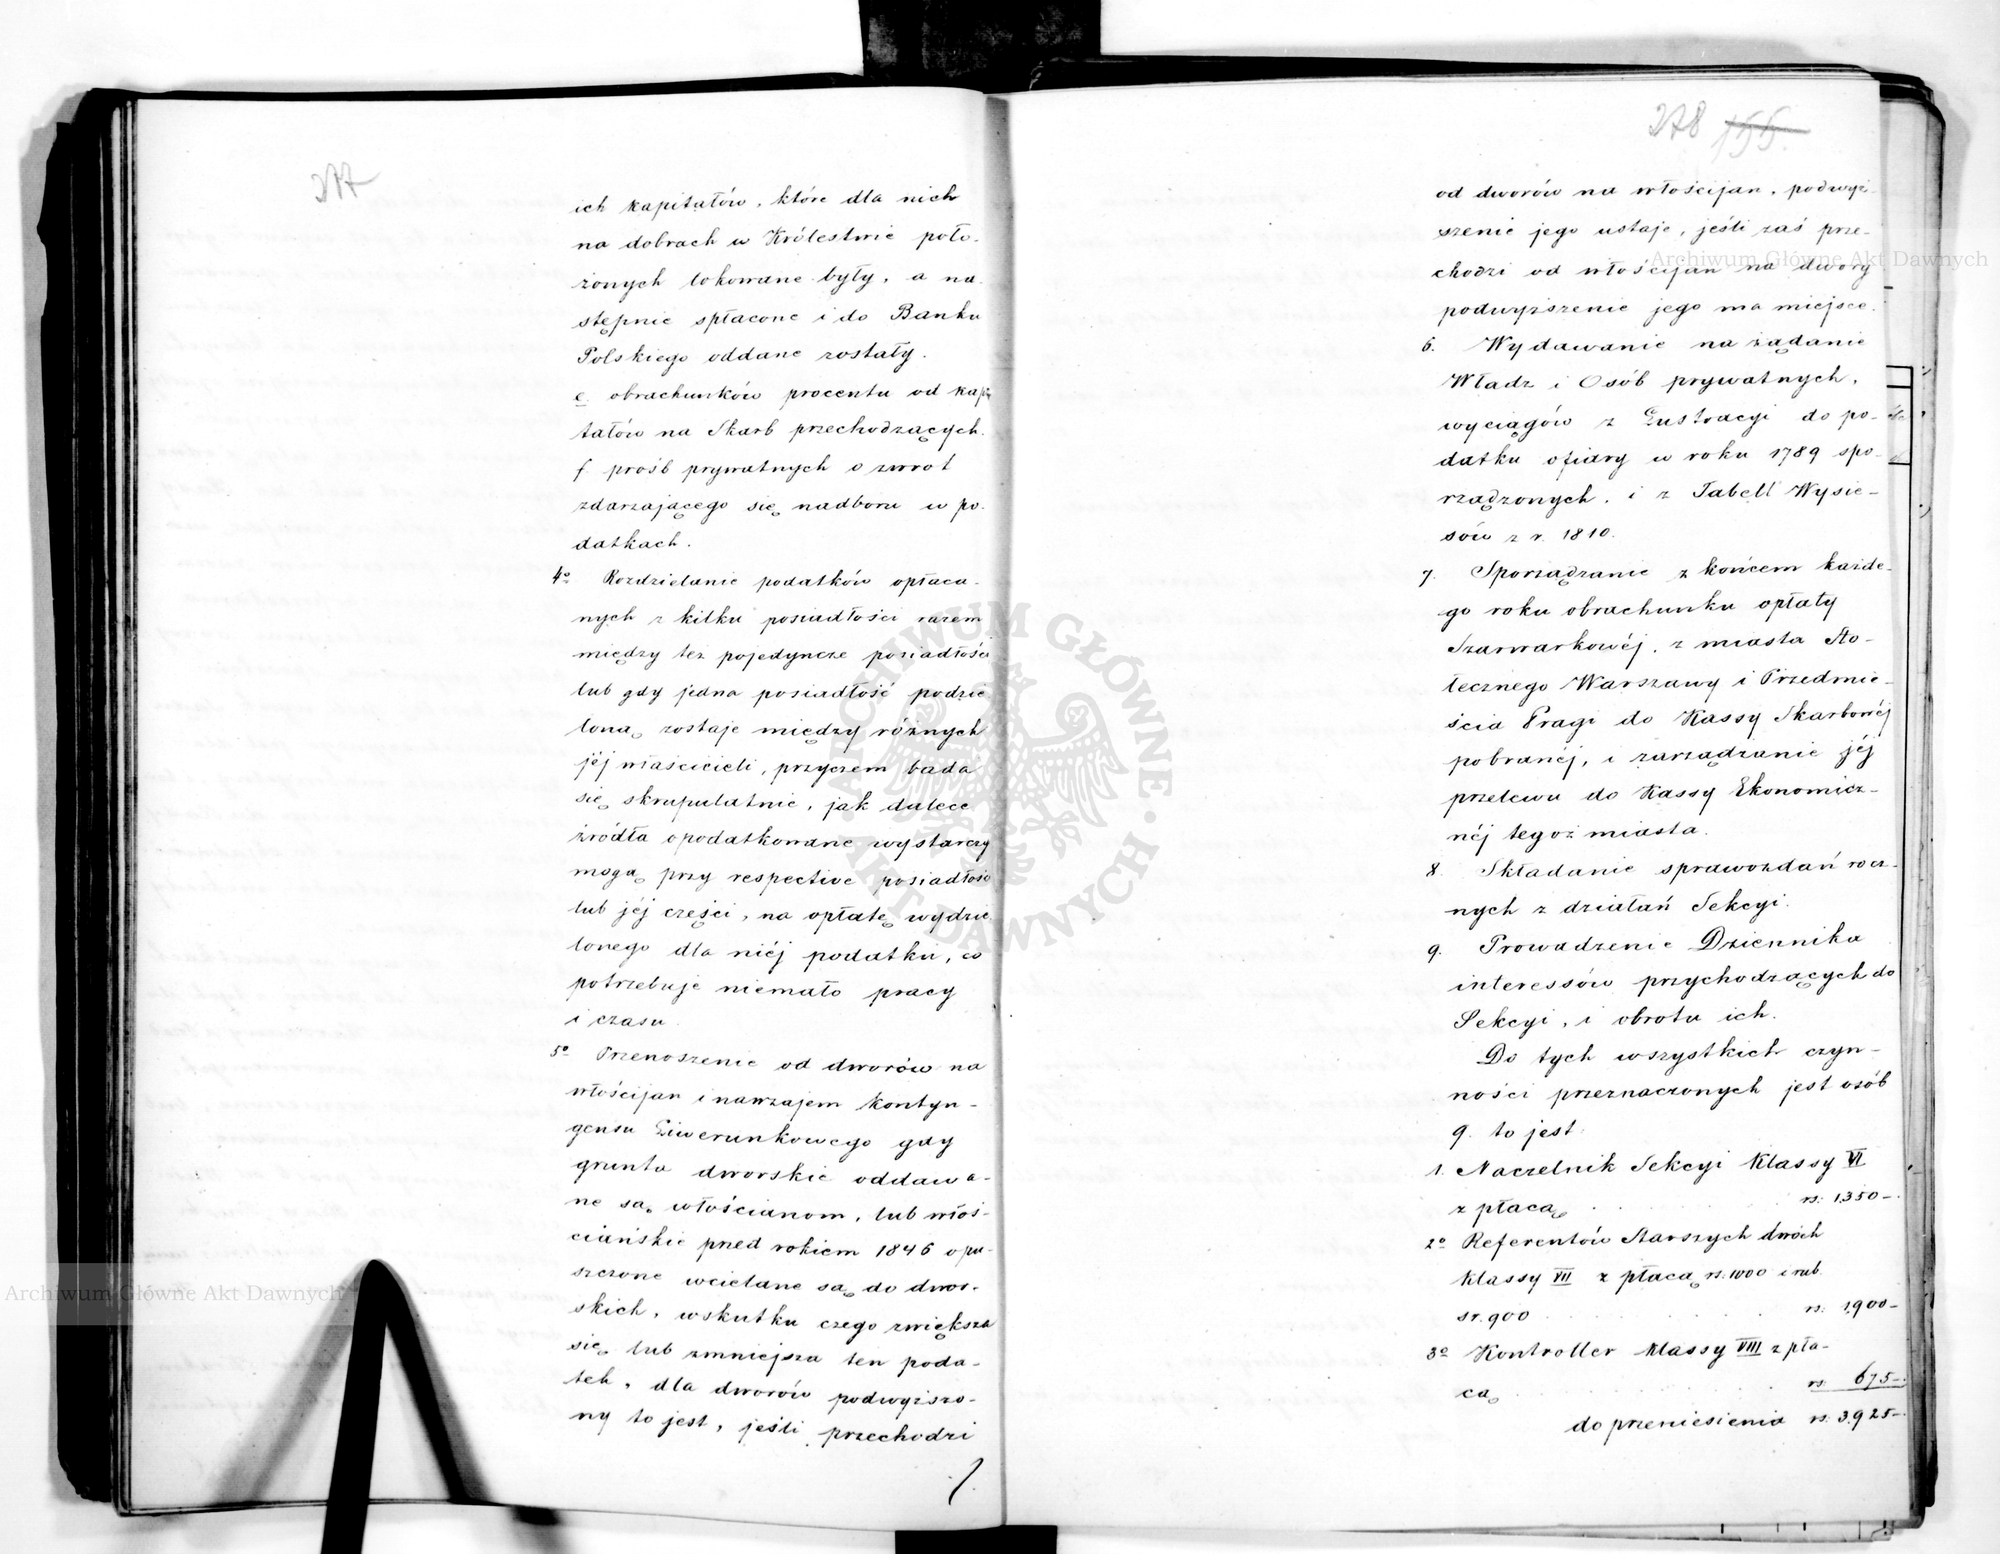 277
ich kapitałów, które dla nich
na dobrach w Królestwie poło-
żonych lokowane były, a na-
stępnie spłacone i do Banku
Polskiego oddane zostały.
e. obrachunków procentu od kapi
tałów na Skarb przechodzących.
f. próśb prywatnych o zwrot
zdarzającego się nadboru w po-
datkach.
4º Rozdzielanie podatków opłaca-
nych z kilku posiadłości razem
między też pojedyncze posiadłości
lub gdy jedna posiadłość podzie
loną zostaje między różnych
jéj właścicieli, przyczem bada
się skrupulatnie, jak dalece
źródła opodatkowane wystarczy
mogą przy respective posiadłości
lub jéj części, na opłatę wydzie
lonego dla niéj podatku, co
potrzebuje niemało pracy
i czasu.
5º Przenoszenie od dworów na
włościjan i nawzajem Kontyn-
gensu Liwerunkowego gdy
grunta dworskie oddawa-
ne są włościanom, lub włoś-
ciańskie przed rokiem 1846 opu-
szczone wcielane są do dwor-
skich, wskutku czego zwiększa
się lub zmniejsza ten poda-
tek, dla dworów podwyższo-
ny to jest, jeśli przechodzi
278 155.
od dworów na włościjan, podwyż-
szenie jego ustaje, jeśli zaś prze-
chodzi od włościjan na dwory
podwyższenie jego ma miejsce.
6. Wydawanie na żądanie
Władz i Osób prywatnych,
wyciągów z Lustracyi do po-
datku ofiary w roku 1789 spo-
rządzonych, i z Tabell Wysie-
sów z r. 1810.
7. Sporządzanie z końcem każde-
go roku obrachunku opłaty
Szarwarkowéj, z miasta Sto-
łecznego Warszawy i Przedmie-
ścia Pragi do Kassy Skarbowéj
pobranéj, i zarządzanie jéj
przelewu do Kassy Ekonomicz-
néj tegoż miasta.
8. Składanie sprawozdań rocz-
nych z działań Sekcyi.
9. Prowadzenie Dziennika
interessów przychodzących do
Sekcyi, i obrotu ich.
Do tych wszystkich czyn-
ności przeznaczonych jest osób
9. to jest:
1. Naczelnik Sekcyi Klassy VI
z płacą . . . . rs. 1,350-
2º Referentów Starszych dwóch
Klassy VII z płacą rs. 1000 i rub.
sr. 900 . . . . rs. 1,900-
3º Kontroller Klassy VIII z pła-
cą . . . . rs. 675-
do przeniesienia rs. 3,925-
Archiwum Główne Akt Dawnych
Archiwum Główne Akt Dawnych
ARCHIWUM GŁÓWNE AKT DAWNYCH